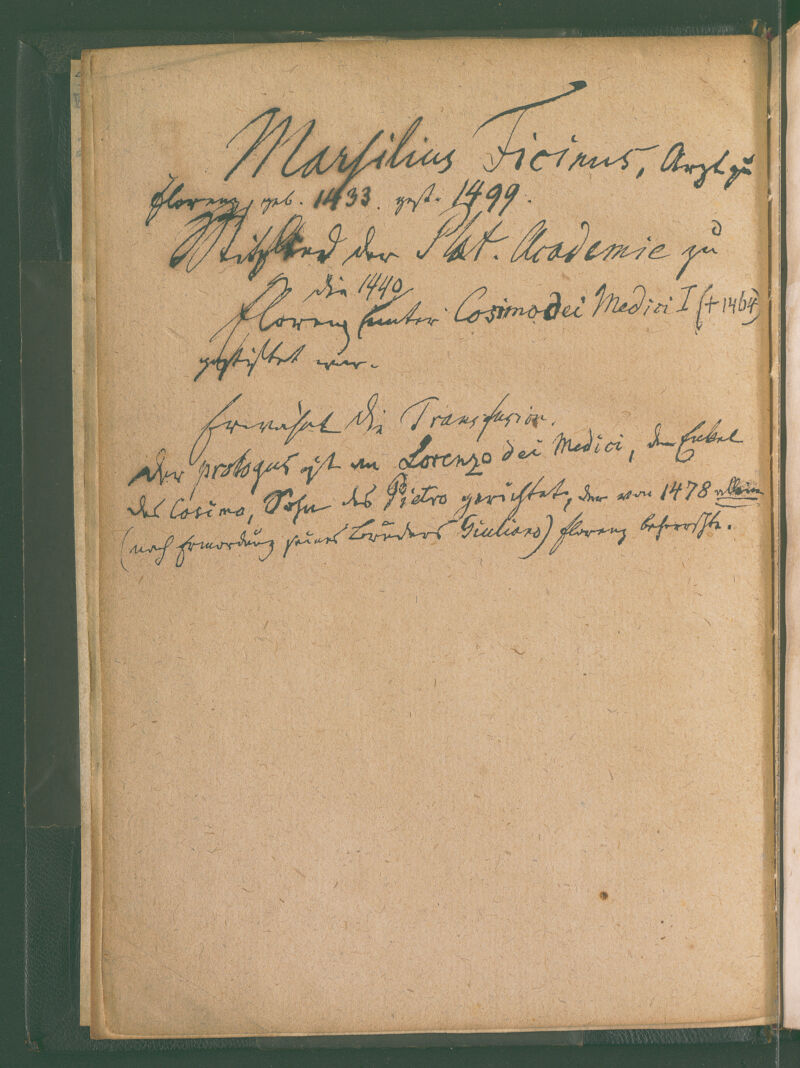 Marsilius Ficinus, Arzt zu
Florenz, geb. 1433. gest. 1499.
Mitglied der Plat. Academie zu
die 1440
Florenz (unter Cosimo dei Medici I († 1464)
gestiftet war.
Erwähnt die Transfusion.
Der prologus ist an Lorenzo dei Medici, den Enkel
des Cosimo, Sohn des Pietro gerichtet, der von 1478 allein
(nach Ermordung seines Bruders Giuliano) Florenz beherrschte.